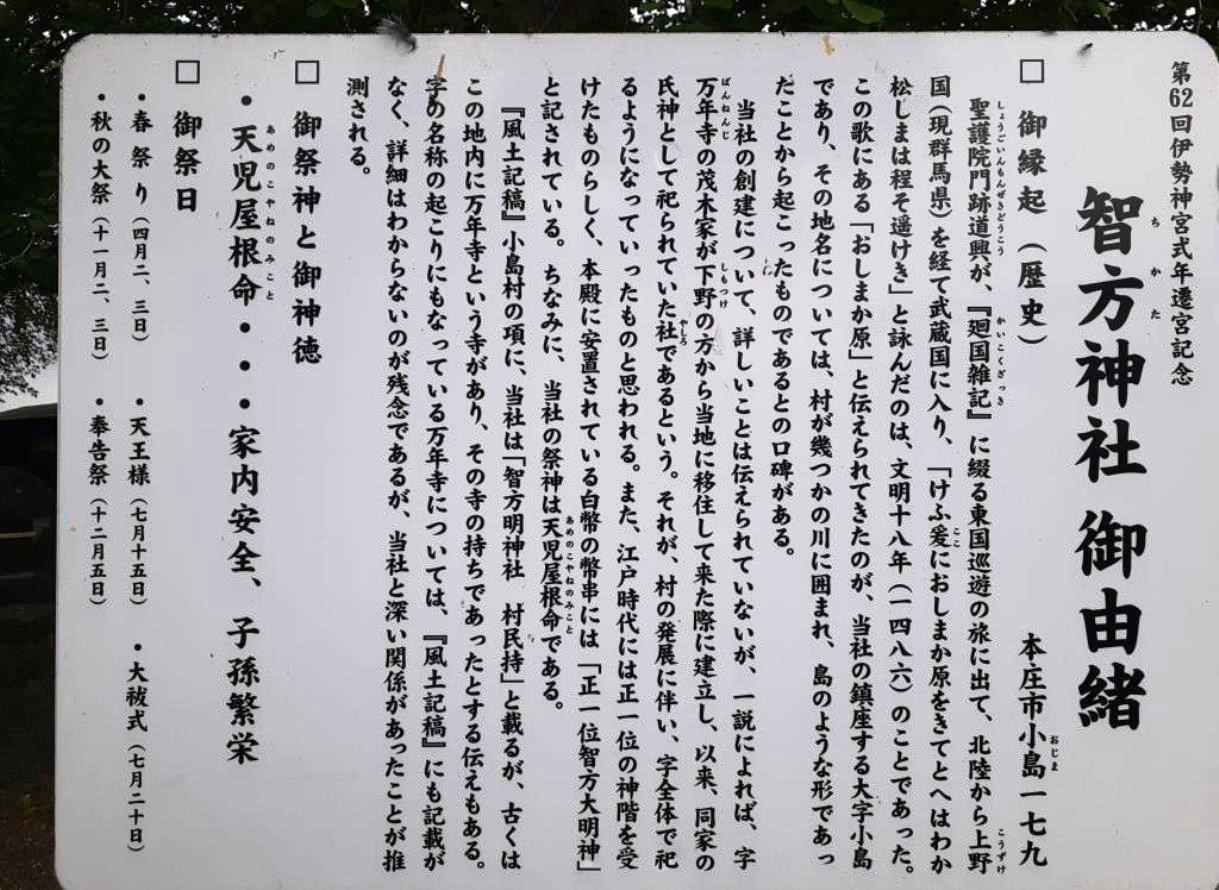 第62回伊勢神宮式年遷宮記念
智方神社 御由緒
ちかた
本庄市小島一七九
おじま
□ 御縁起（歴史）
聖護院門跡道興が、『廻国雑記』に綴る東国巡遊の旅に出て、北陸から上野
しょうごいんもんぜきどうこう かいこくざっき こうずけ
国（現群馬県）を経て武蔵国に入り、「けふ爰におしまか原をきてとへはわか
ここ
松しまは程そ遥けき」と詠んだのは、文明十八年（一四八六）のことであった。
この歌にある「おしまか原」と伝えられてきたのが、当社の鎮座する大字小島
であり、その地名については、村が幾つかの川に囲まれ、島のような形であっ
たことから起こったものであるとの口碑がある。
当社の創建について、詳しいことは伝えられていないが、一説によれば、字
万年寺の茂木家が下野の方から当地に移住して来た際に建立し、以来、同家の
ばんねんじ しもつけ
氏神として祀られていた社であるという。それが、村の発展に伴い、字全体で祀
やしろ
るようになっていったものと思われる。また、江戸時代には正一位の神階を受
けたものらしく、本殿に安置されている白幣の幣串には「正一位智方大明神」
と記されている。ちなみに、当社の祭神は天児屋根命である。
あめのこやねのみこと
『風土記稿』小島村の項に、当社は「智方明神社 村民持」と載るが、古くは
この地内に万年寺という寺があり、その寺の持ちであったとする伝えもある。
字の名称の起こりにもなっている万年寺については、『風土記稿』にも記載が
なく、詳細はわからないのが残念であるが、当社と深い関係があったことが推
測される。
□ 御祭神と御神徳
・天児屋根命・・・家内安全、子孫繁栄
あめのこやねのみこと
□ 御祭日
・春祭り（四月二、三日） ・天王様（七月十五日） ・大祓式（七月二十日）
・秋の大祭（十一月二、三日） ・奉告祭（十二月五日）